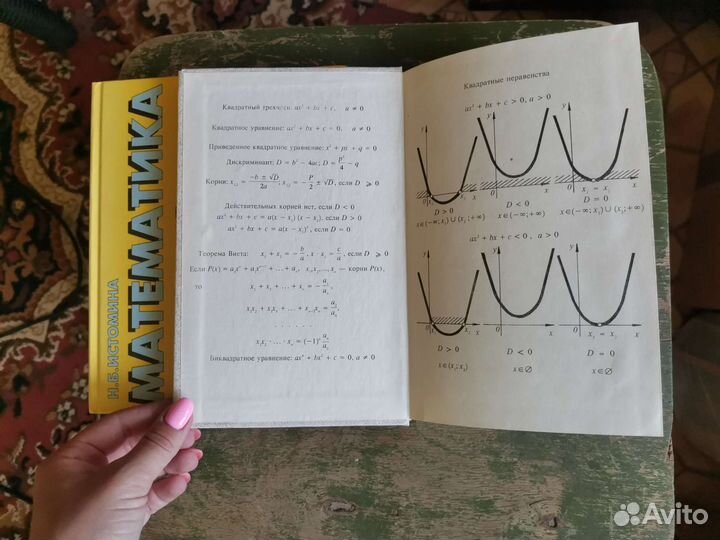 Н.Б. ИСТОМИНА
МАТЕМАТИКА
Квадратный трехчлен: ax² + bx + c, a ≠ 0
Квадратное уравнение: ax² + bx + c = 0, a ≠ 0
Приведенное квадратное уравнение: x² + px + q = 0
Дискриминант: D = b² − 4ac; D = p²/4 − q
Корни: x₁,₂ = (−b ± √D)/2a; x₁,₂ = −p/2 ± √D, если D ⩾ 0
Действительных корней нет, если D < 0
ax² + bx + c = a(x − x₁)(x − x₂), если D > 0
ax² + bx + c = a(x − x₁)², если D = 0
Теорема Виета: x₁ + x₂ = −b/a, x₁·x₂ = c/a, если D ⩾ 0
Если P(x) = a₀xⁿ + a₁xⁿ⁻¹ + ... + aₙ, x₁, x₂, ..., xₙ — корни P(x),
то x₁ + x₂ + ... + xₙ = −a₁/a₀,
x₁x₂ + x₁x₃ + ... + xₙ₋₁xₙ = a₂/a₀,
. . . . .
x₁x₂ · ... · xₙ = (−1)ⁿ aₙ/a₀
Биквадратное уравнение: ax⁴ + bx² + c = 0, a ≠ 0
Квадратные неравенства
ax² + bx + c > 0, a > 0
y y y
0 x₁ x₂ x 0 x 0 x₁ = x₂ x
D > 0 D < 0 D = 0
x∈(−∞; x₁) ∪ (x₂; +∞) x∈(−∞; +∞) x∈(−∞; x₁) ∪ (x₂; +∞)
ax² + bx + c < 0, a > 0
y y y
0 x₁ x₂ x 0 x 0 x₁ = x₂ x
D > 0 D < 0 D = 0
x∈(x₁; x₂) x∈∅ x∈∅
Avito